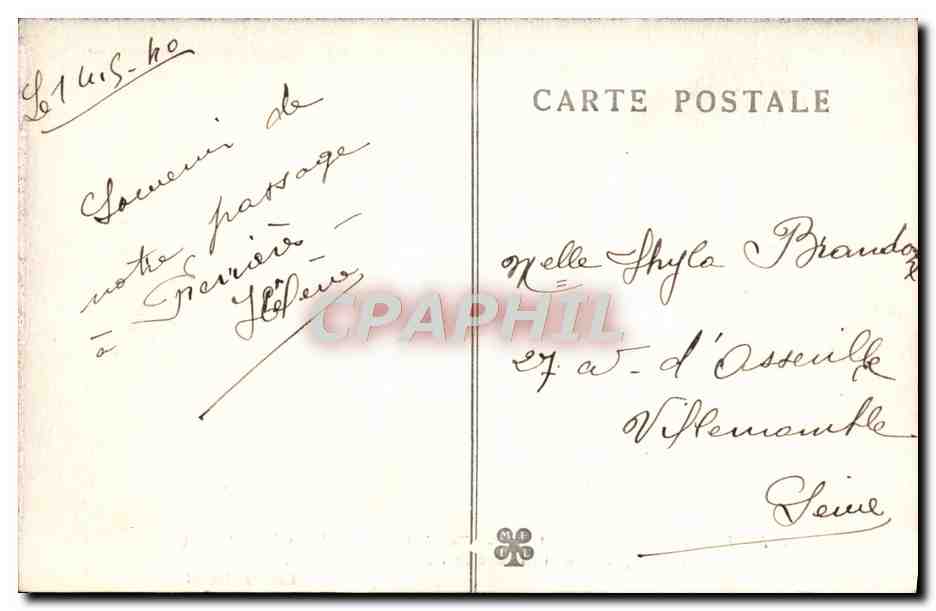 Le 14.5-40
Souvenir de
notre passage
à Ferrières -
Hélène
CARTE POSTALE
Melle Brandon
27 av - d'
Villemomble
Seine
CPAPHIL